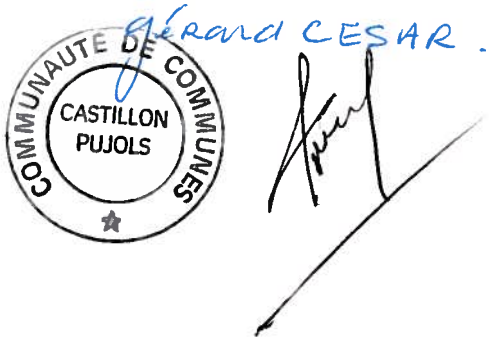 Gérard CESAR.
COMMUNAUTE DE COMMUNES
CASTILLON
PUJOLS